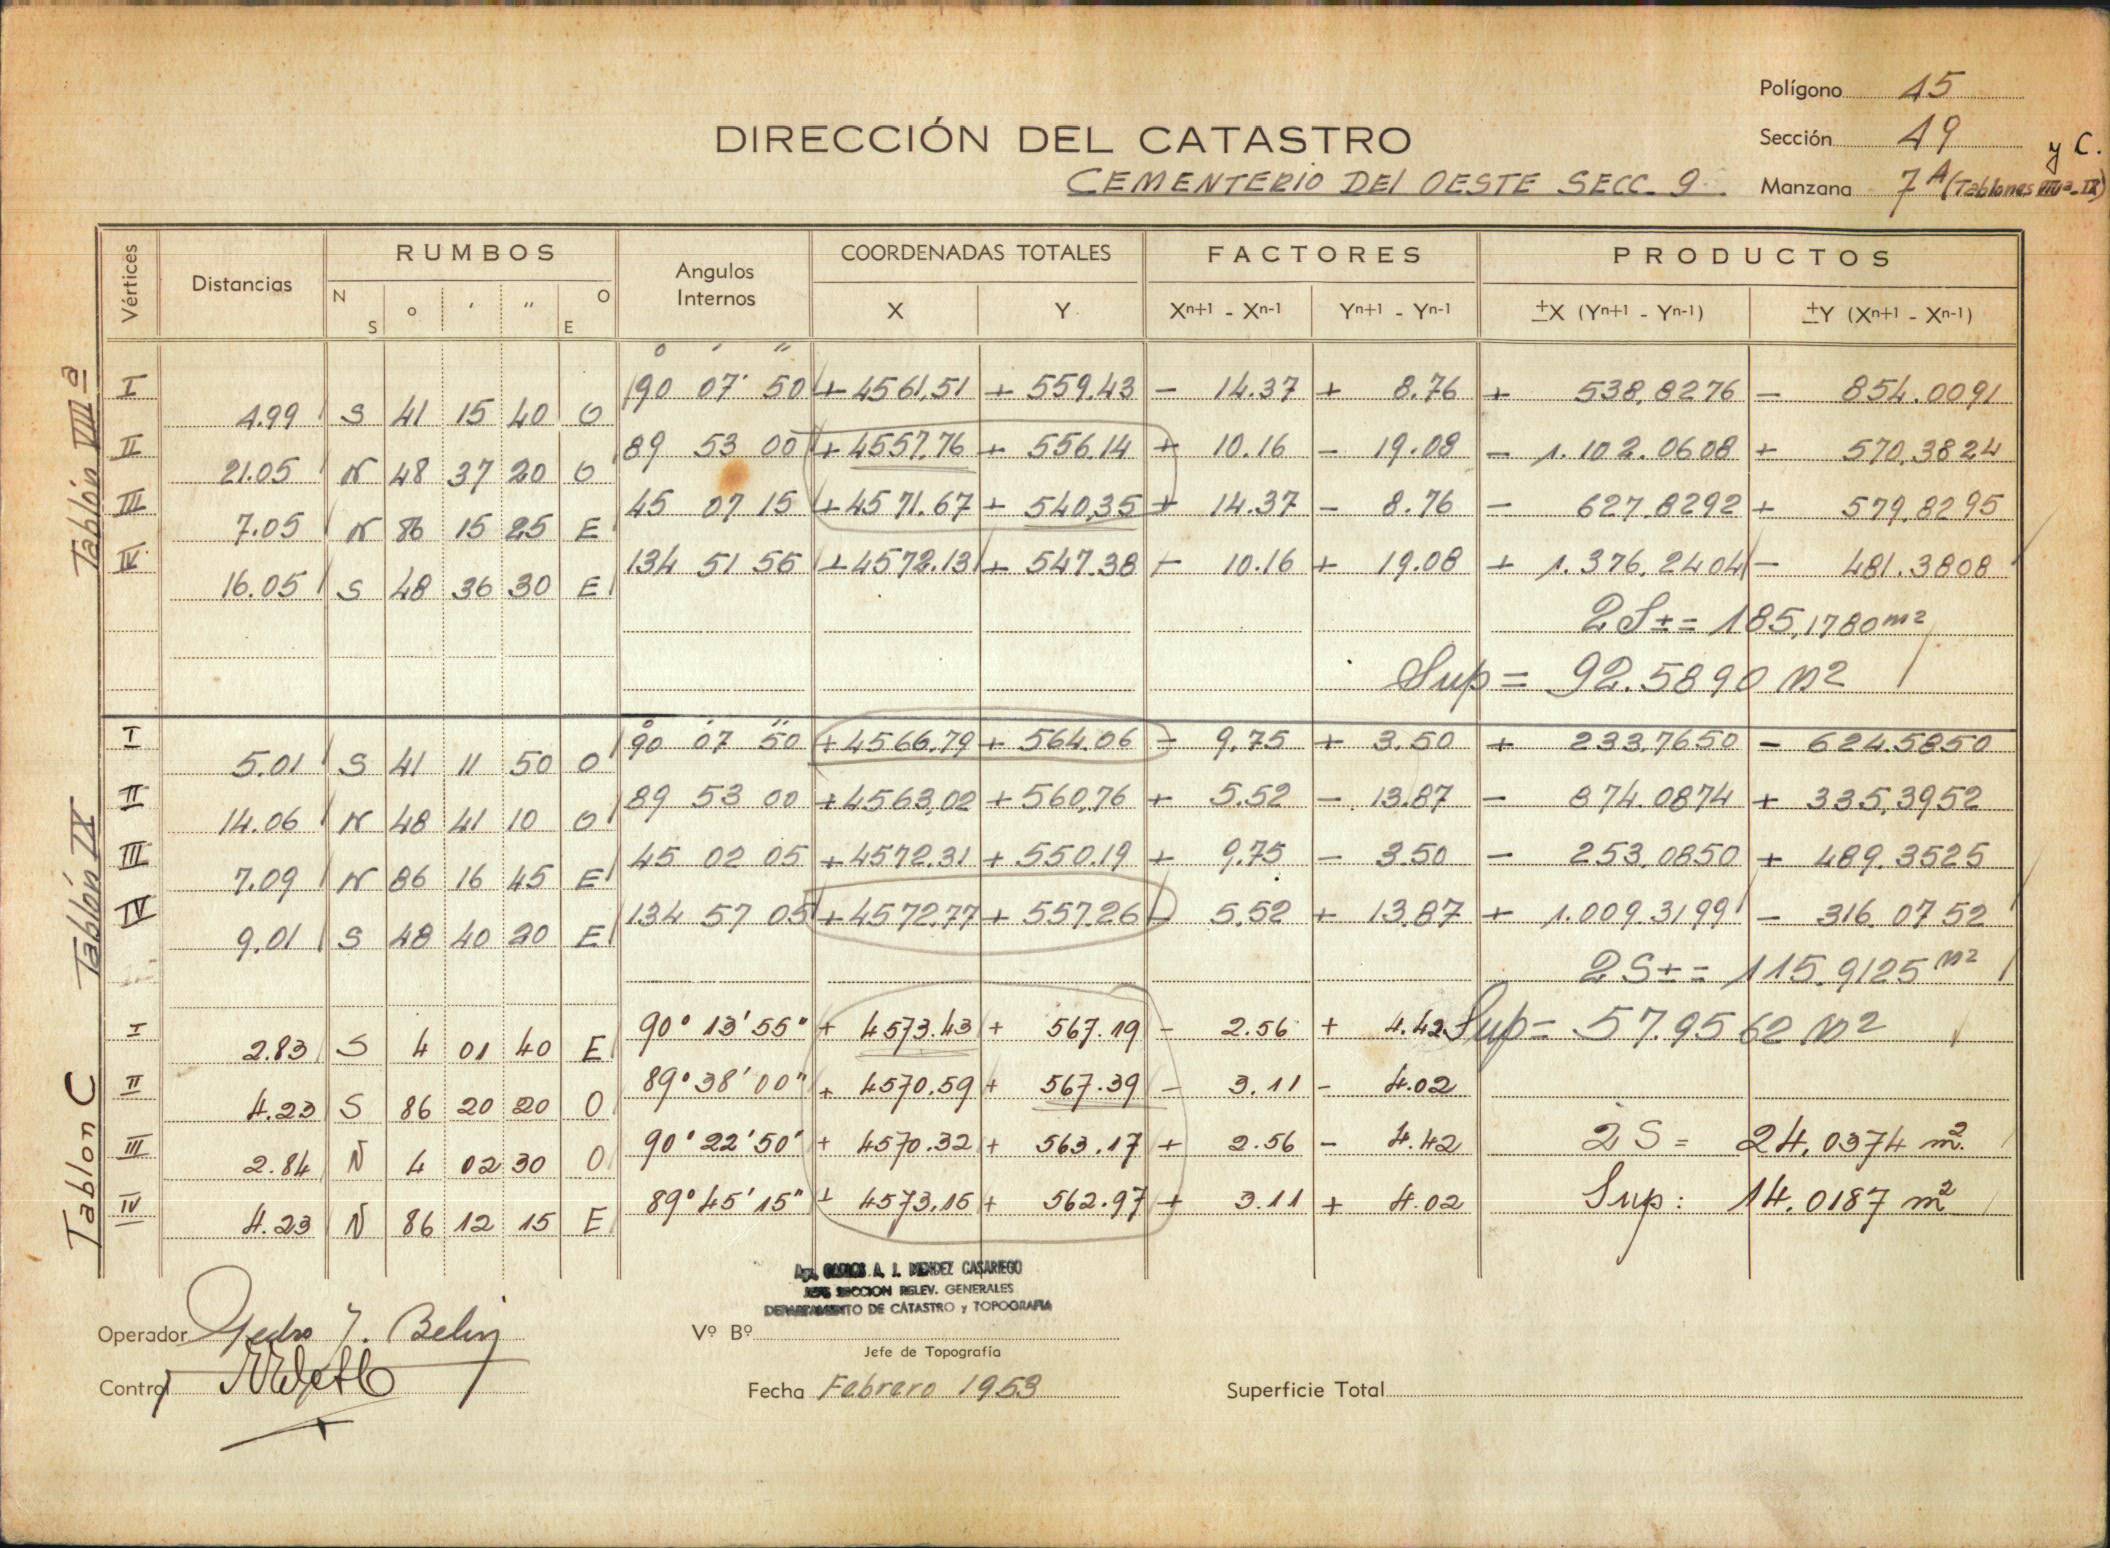 Polígono 15
DIRECCIÓN DEL CATASTRO
Sección 49
y C.
CEMENTERIO DEl OESTE SECC. 9.
Manzana 7A (Tablones VIIIa-IX)
Vértices Distancias RUMBOS Angulos Internos COORDENADAS TOTALES FACTORES PRODUCTOS
N S ° ' " O E X Y Xn+1 - Xn-1 Yn+1 - Yn-1 ±X (Yn+1 - Yn-1) ±Y (Xn+1 - Xn-1)
Tablón VIII a
° ' "
I 90 07' 50 + 4561,51 + 559.43 - 14.37 + 8.76 + 538,8276 - 854.0091
4.99 S 41 15 40 O
II 89 53 00 + 4557.76 + 556.14 + 10.16 - 19.08 - 1.102.0608 + 570,3824
21.05 N 48 37 20 O
III 45 07 15 + 4571.67 + 540,35 + 14.37 - 8.76 - 627.8292 + 579,8295
7.05 N 86 15 25 E
IV 134 51 55 + 4572.13 + 547.38 - 10.16 + 19.08 + 1.376.2404 - 481.3808
16.05 S 48 36 30 E
2S± = 185,1780 m2
Sup = 92.5890 m2
Tablón IX
° ' "
I 90 07 50 + 4566,79 + 564.06 - 9,75 + 3.50 + 233.7650 - 624.5850
5.01 S 41 11 50 O
II 89 53 00 + 4563,02 + 560,76 + 5.52 - 13.87 - 874.0874 + 335,3952
14.06 N 48 41 10 O
III 45 02 05 + 4572.31 + 550.19 + 9.75 - 3.50 - 253.0850 + 489.3525
7.09 N 86 16 45 E
IV 134 57 05 + 4572.77 + 557.26 - 5.52 + 13.87 + 1.009.3199 - 316.0752
9.01 S 48 40 20 E
2S± = 115.9125 m2
Sup = 57.9562 m2
Tablon C
I 90° 13' 55" + 4573.43 + 567.19 - 2.56 + 4.42
2.83 S 4 01 40 E
II 89° 38' 00" + 4570.59 + 567.39 - 3.11 - 4.02
4.23 S 86 20 20 O
III 90° 22' 50' + 4570.32 + 563.17 + 2.56 - 4.42 2S = 24,0374 m2.
2.84 N 4 02 30 O
IV 89° 45' 15" + 4573,15 + 562.97 + 3.11 + 4.02 Sup: 14.0187 m2
4.23 N 86 12 15 E
A. J. MENDEZ CASARIEGO
JEFE SECCION RELEV. GENERALES
DEPARTAMENTO DE CATASTRO y TOPOGRAFIA
Operador Pedro J. Belin
Vº Bº
Jefe de Topografía
Control
Fecha Febrero 1953
Superficie Total